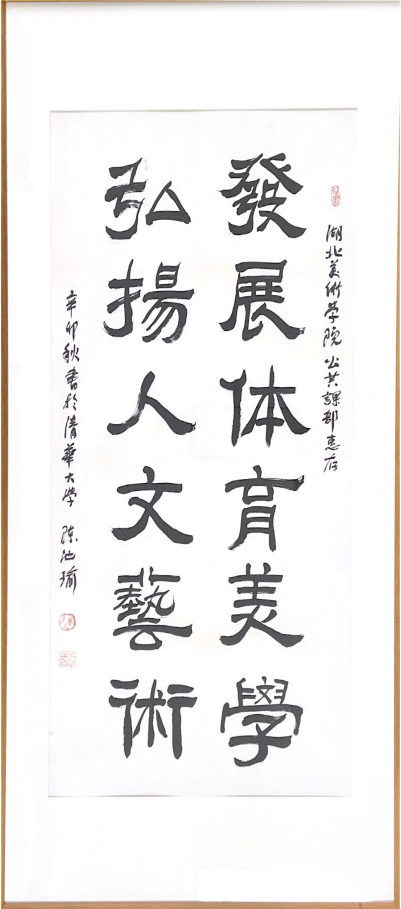 湖北美術学院公共課部惠存
發展体育美學
弘揚人文藝術
辛卯秋書於清華大学 陈池瑜